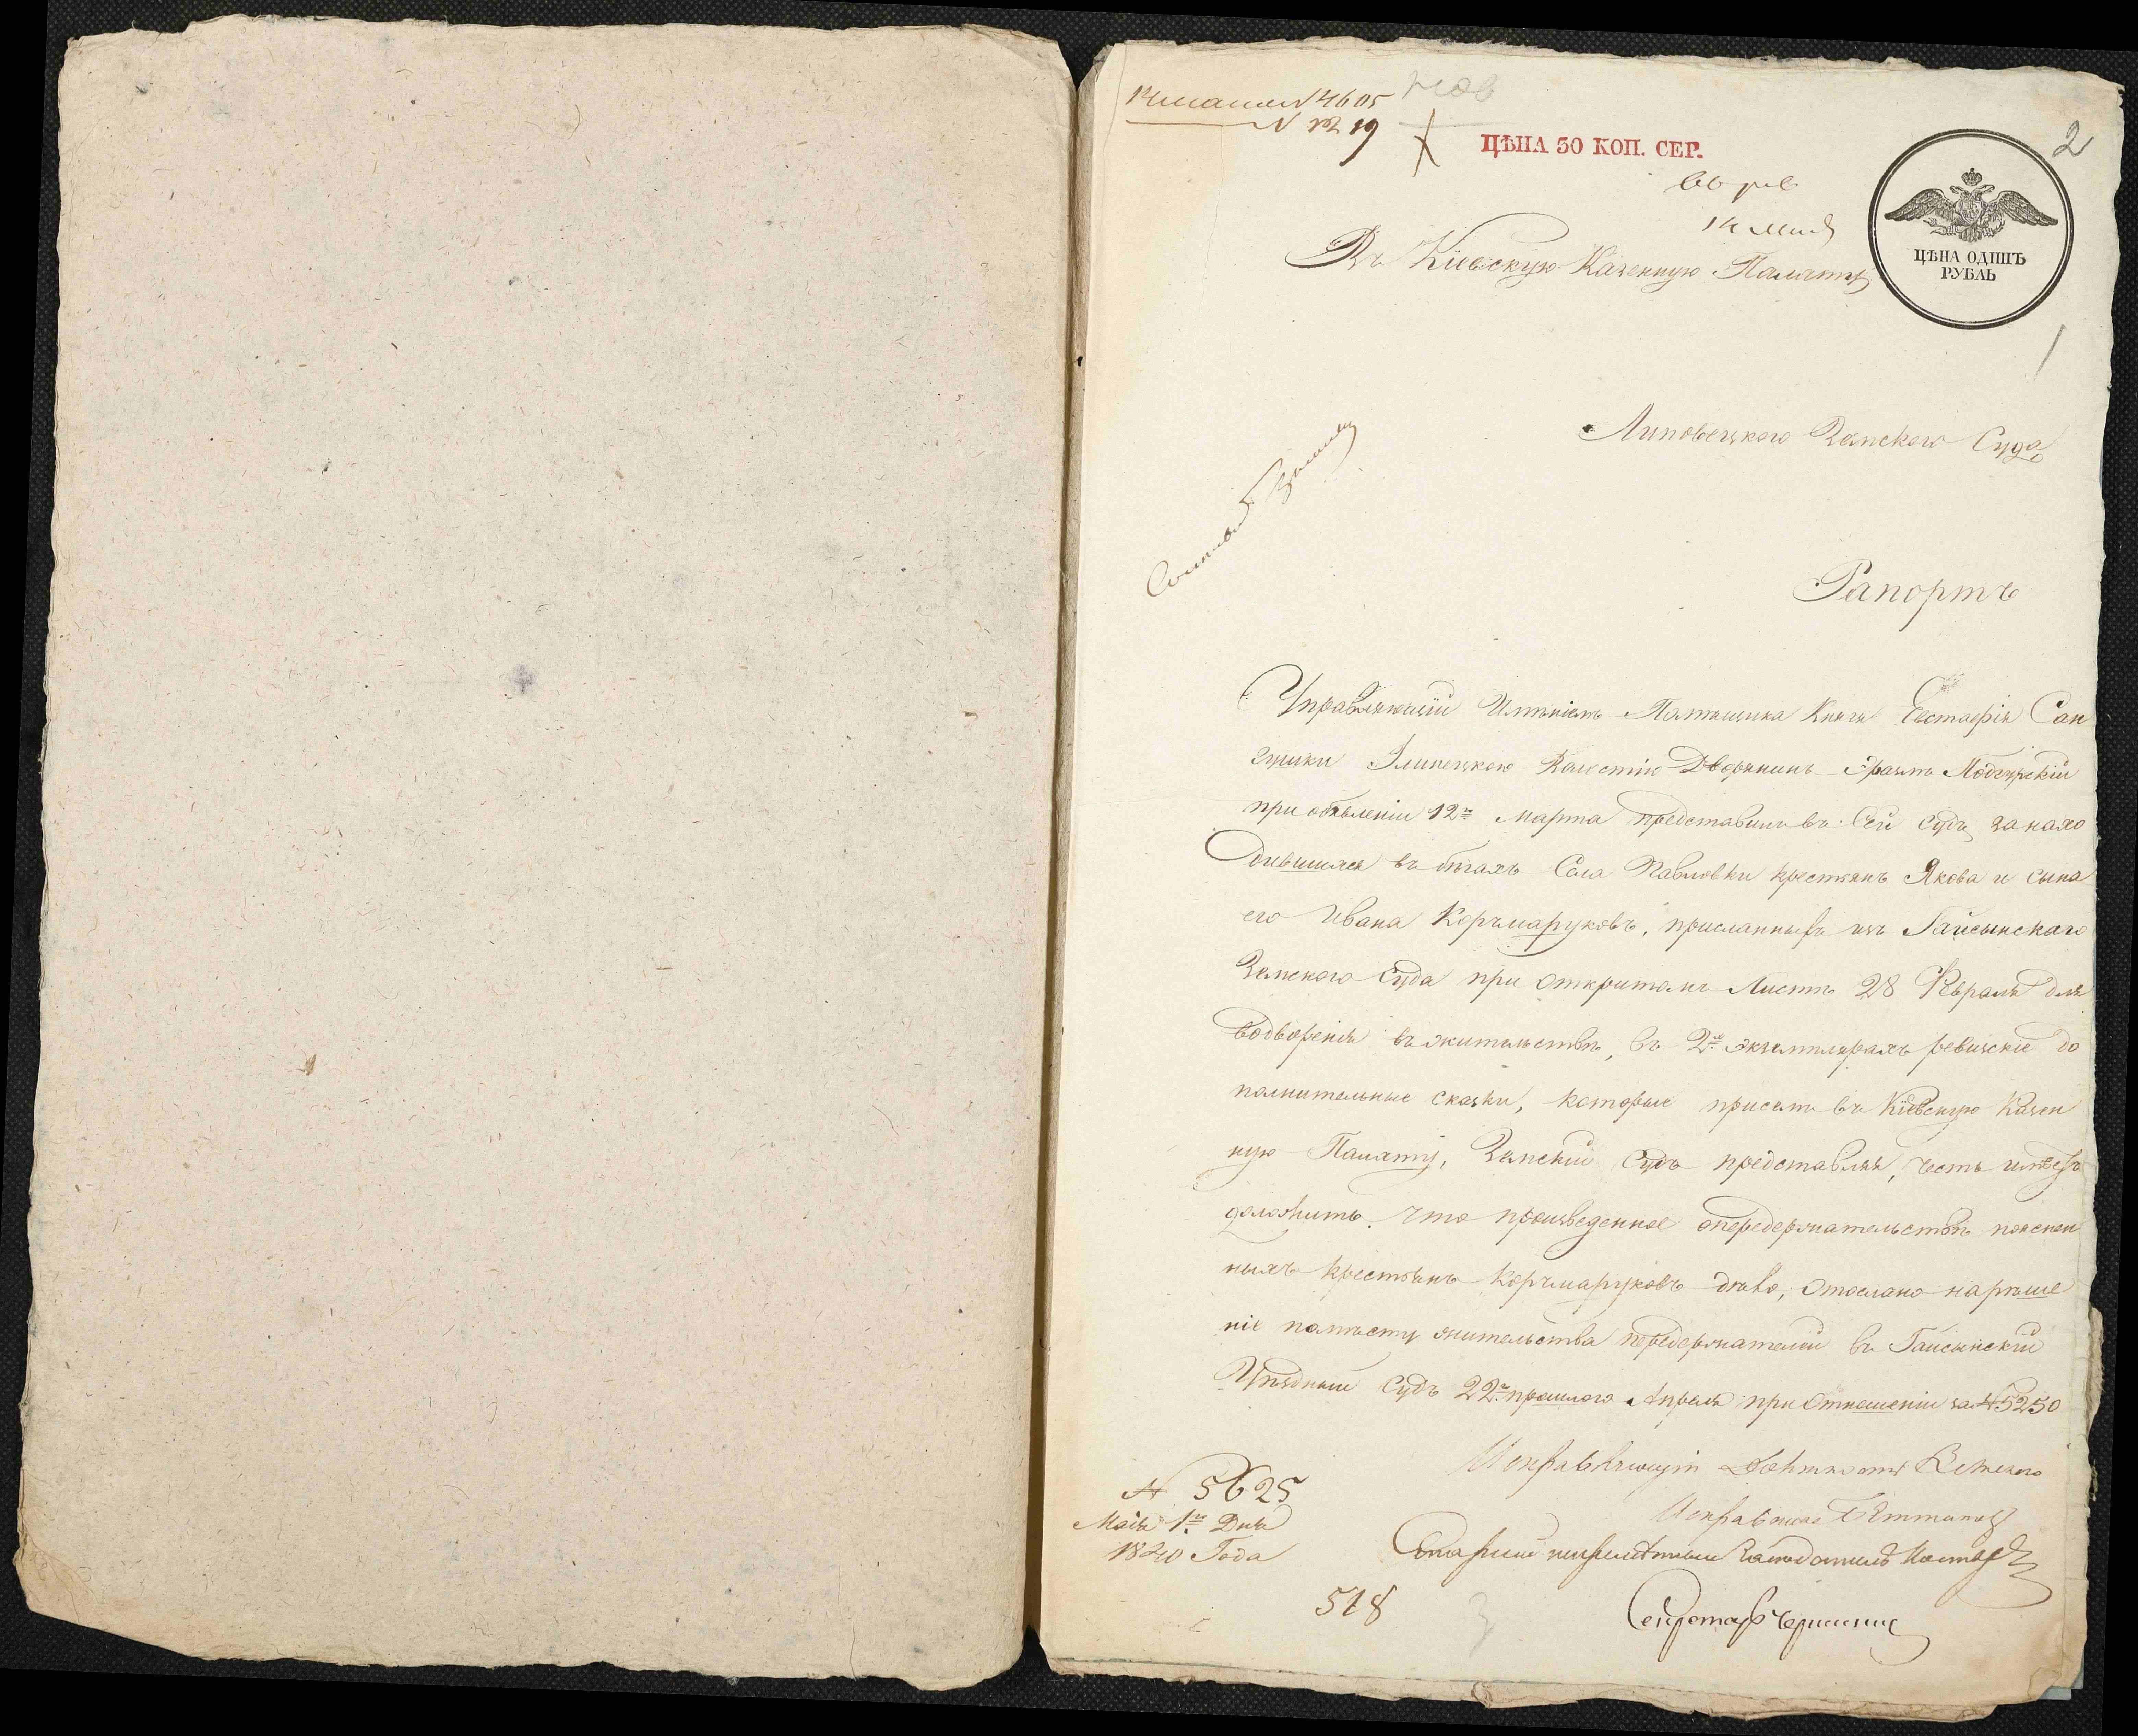 14 мая № 4605
№ 19
2
ЦѢНА 30 КОП. СЕР.
14 мая
ЦѢНА ОДИНЪ
РУБЛЬ
Въ Кіевскую Казенную Палату
1
Липовецкаго Земскаго Суда
Рапортъ
Управляющій Имѣніемъ Помѣщика Князя Евстафія Сан
гушки Илинецкою Волостію Дворянинъ Игнатъ Подгурскій
при объявленіи 12го Марта представилъ въ Сей Судъ, за нахо
дившихся въ бѣгахъ Села Павловки крестьянъ Якова и сына
его Ивана Корчмаруковъ, присланныхъ изъ Гайсынскаго
Земскаго Суда при открытомъ Листѣ 28 Февраля для
водворенія въ жительствѣ, въ 2хъ экземплярахъ ревизскіе до
полнительные сказки, которые присемъ въ Кіевскую Казен
ную Палату, Земскій Судъ представляя, честь имѣетъ
доложить, что произведенное опередержательствѣ пояснен
ныхъ крестьянъ Корчмаруковъ дѣло, отослано нарѣше
ніе помѣсту жительства передержателей въ Гайсынскій
Уѣздный Судъ 22го прошлаго Апрѣля при Отношеніи за № 5250
Исправляющій Должность Земскаго
Исправника
№ 5625
Маія 1го Дня
1840 Года
Старшій непремѣнный Засѣдатель
518
3
Секретарь